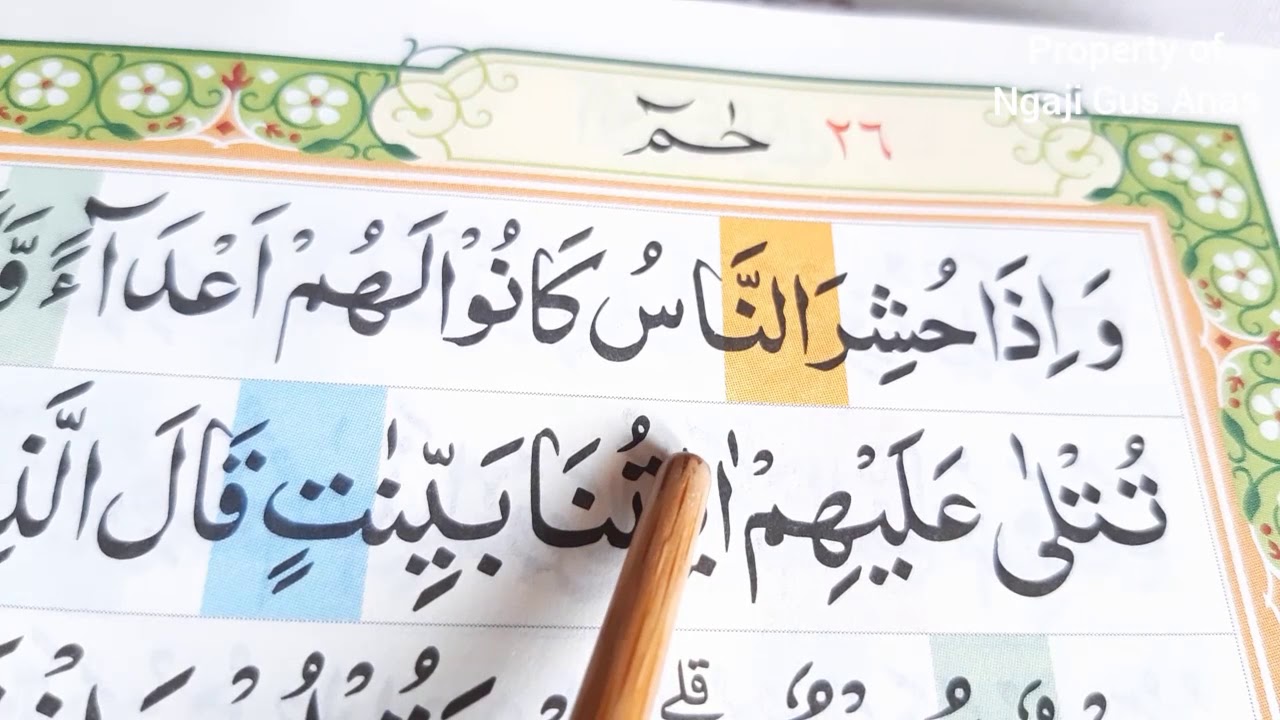 Property of
Ngaji Gus Anas
حٰمۤ ٢٦
وَاِذَا حُشِرَ النَّاسُ كَانُوْا لَهُمْ اَعْدَاۤءً
تُتْلٰى عَلَيْهِمْ اٰيٰتُنَا بَيِّنٰتٍ قَالَ
قلے